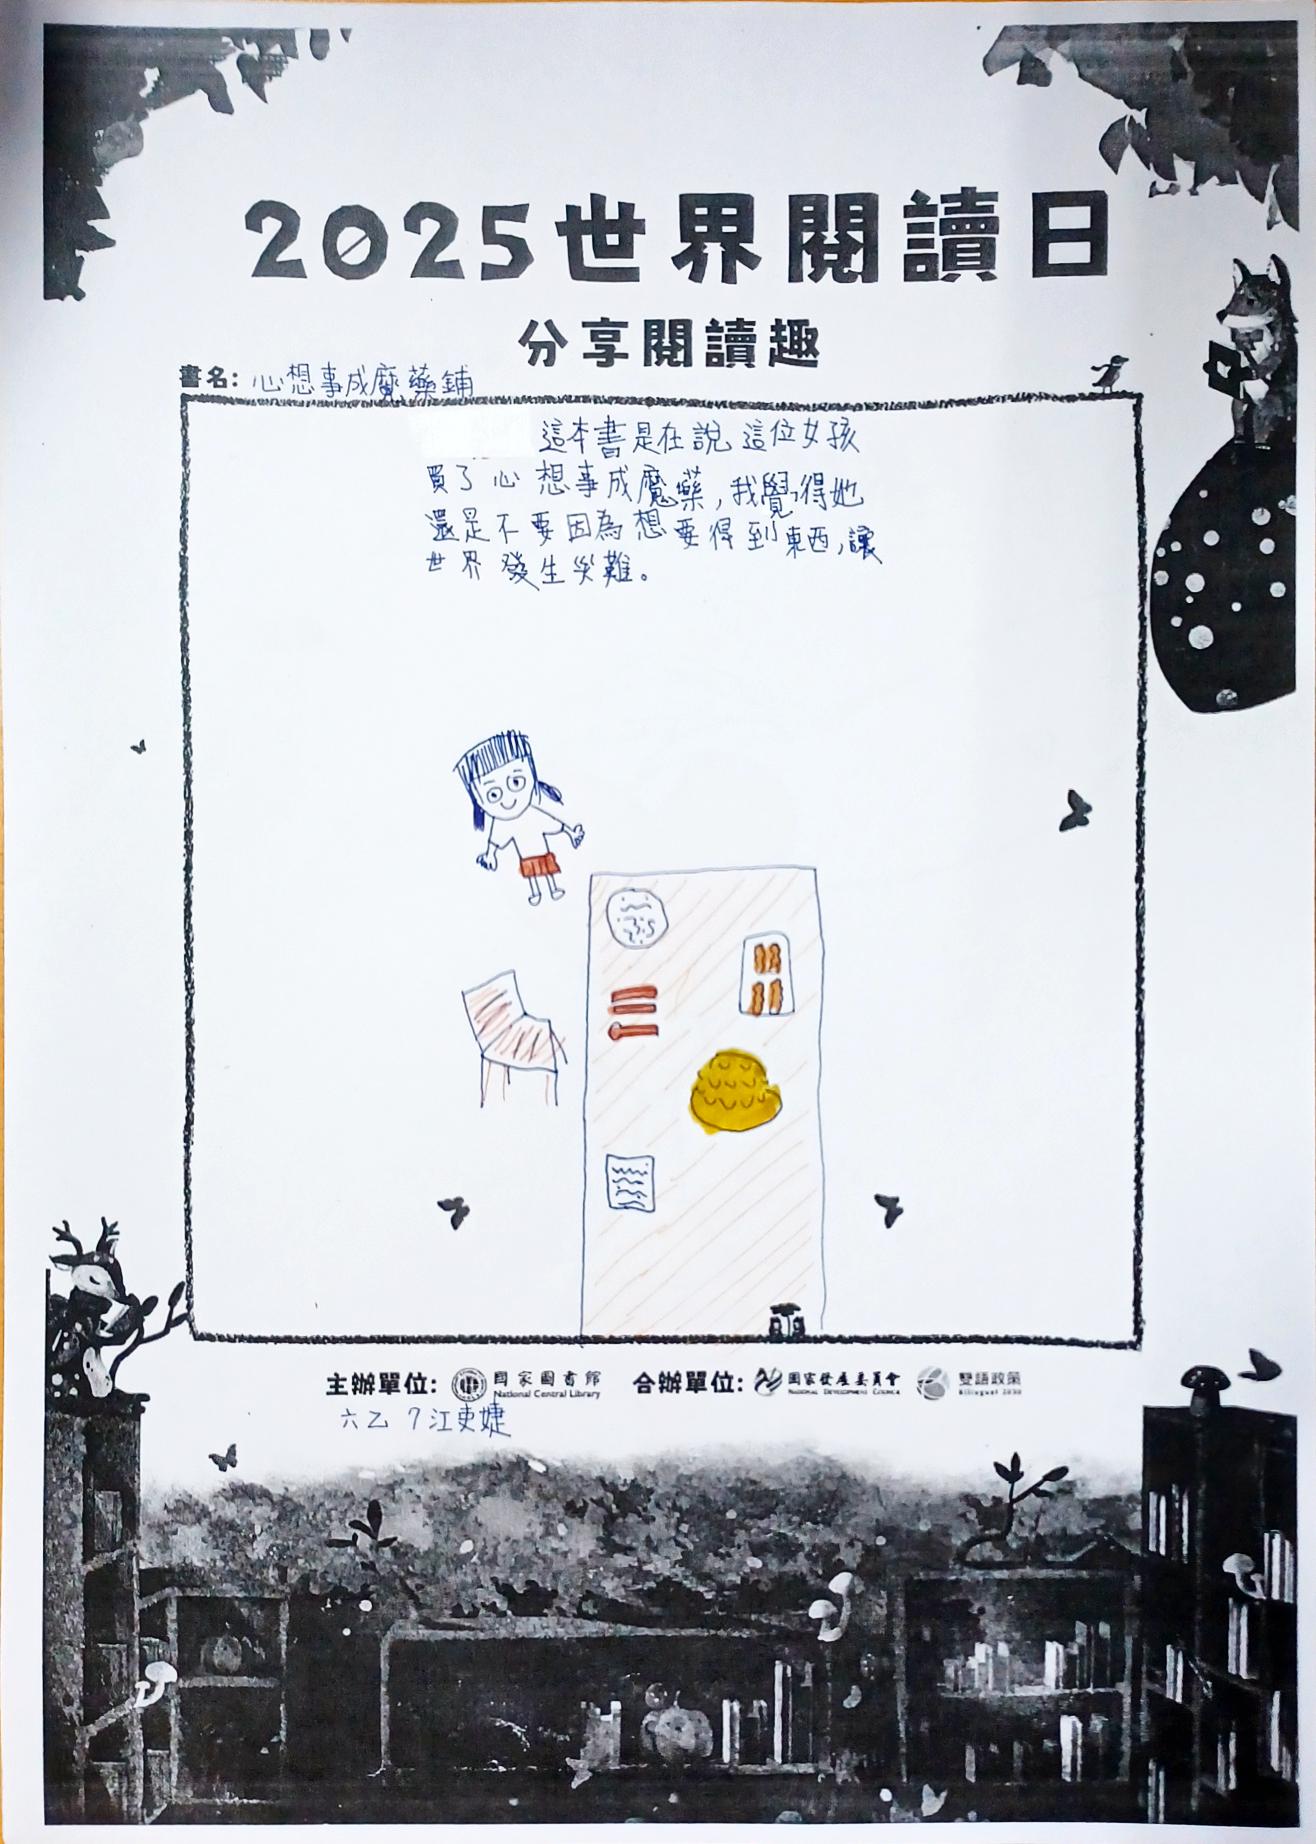 2025世界閱讀日
分享閱讀趣
書名: 心想事成魔藥鋪
這本書是在說這位女孩
買了心想事成魔藥,我覺得她
還是不要因為想要得到東西,讓
世界發生災難。
主辦單位: 國家圖書館 National Central Library 合辦單位: 國家發展委員會 National Development Council 雙語政策 Bilingual 2030
六乙 7江